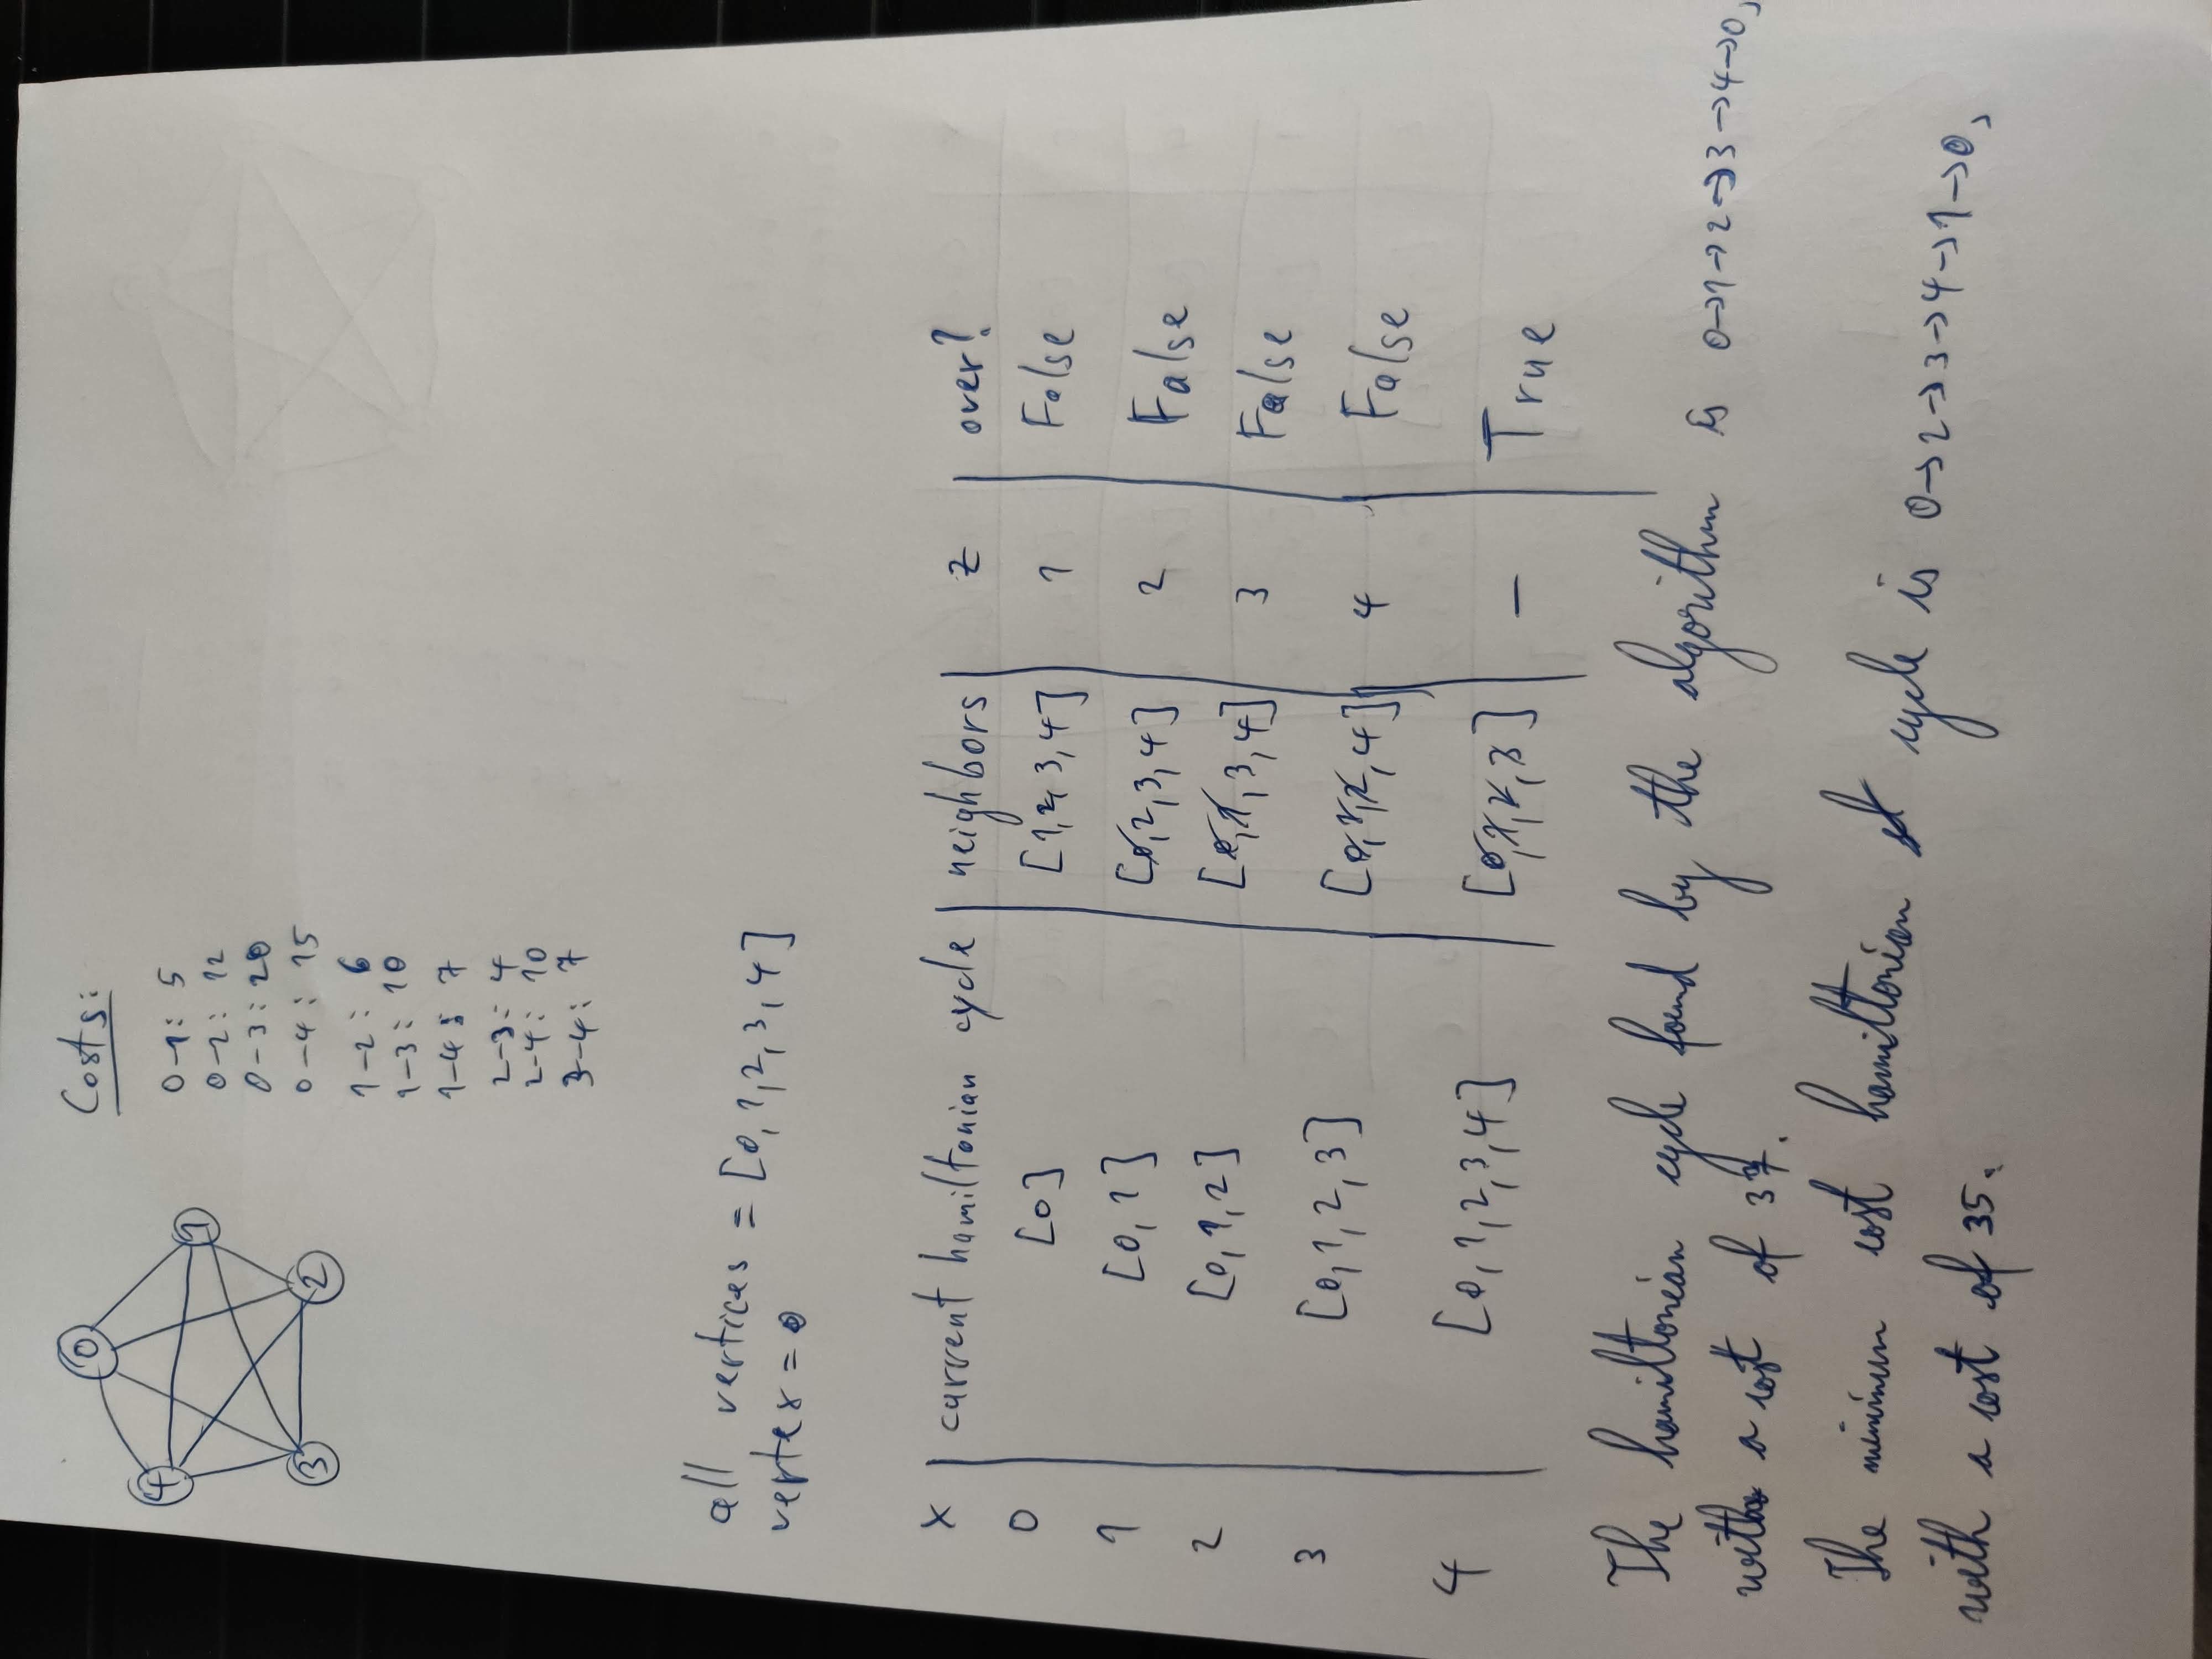 0
4
1
3
2
Costs:
0-1: 5
0-2: 12
0-3: 20
0-4: 15
1-2: 6
1-3: 10
1-4: 7
2-3: 4
2-4: 10
3-4: 7
all vertices = [0,1,2,3,4]
vertex = 0
x | current hamiltonian cycle | neighbors | z | over?
0 | [0] | [1,2,3,4] | 1 | False
1 | [0,1] | [0,2,3,4] | 2 | False
2 | [0,1,2] | [0,1,3,4] | 3 | False
3 | [0,1,2,3] | [0,1,2,4] | 4 | False
4 | [0,1,2,3,4] | [0,1,2,3] | - | True
The hamiltonian cycle found by the algorithm is 0→1→2→3→4→0,
with a cost of 37.
The minimum cost hamiltonian cycle is 0→2→3→4→1→0,
with a cost of 35.